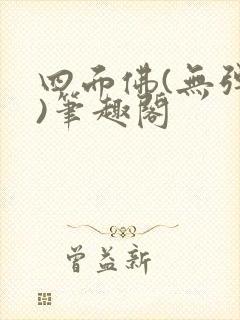 四而佛(無彈
)筆趣閣
曾益新